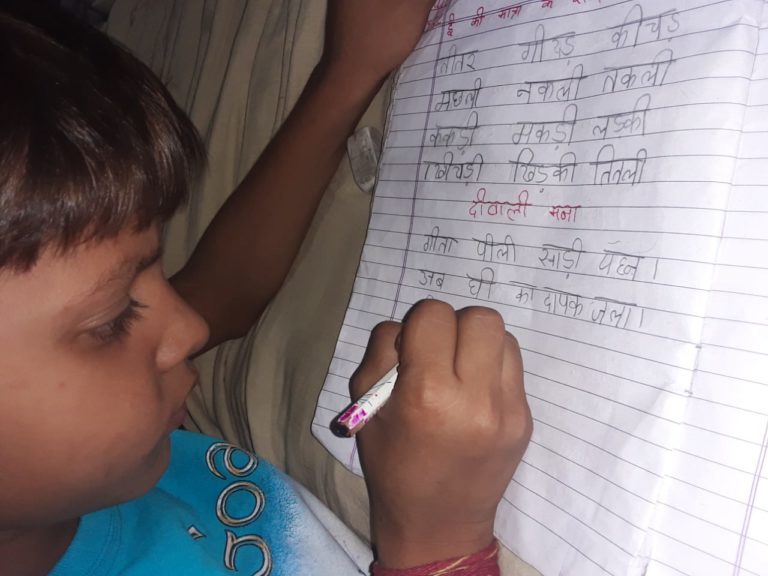 ई की मात्रा के
तीतर गीदड़ कीचड़
मछली नकली तकली
ककड़ी मकड़ी लड़की
खिचड़ी खिड़की तितली
दीवाली मना
गीता पीली साड़ी पहन ।
अब घी का दीपक जला ।